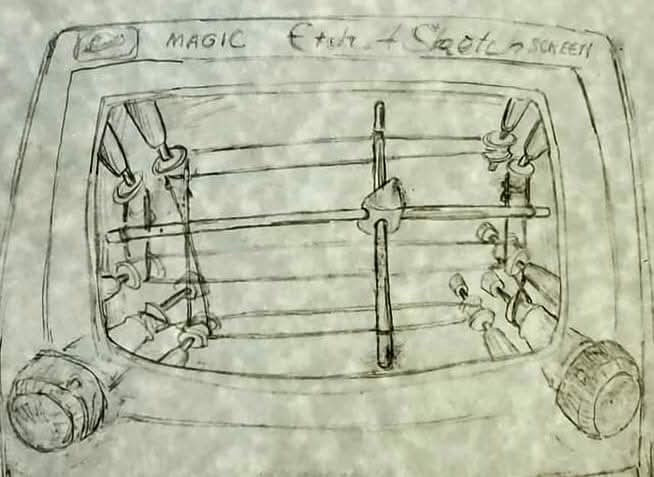 MAGIC Etch A Sketch SCREEN